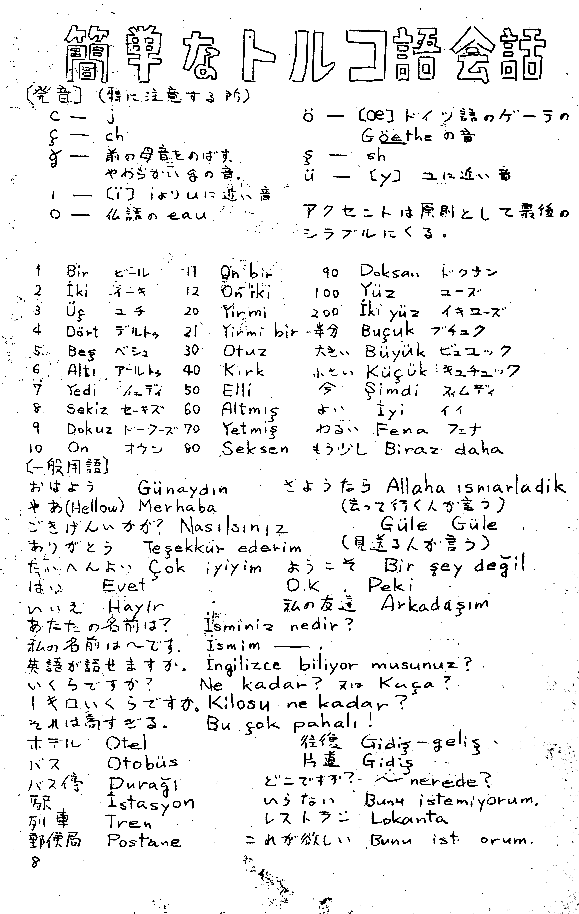 簡単なトルコ語会話
〔発音〕(特に注意する所)
c — j
ç — ch
ğ — 前の母音をのばす。
やわらかい gの音。
ı — 〔ï〕 iよりuに近い音
o — 仏語の eau
ö — 〔oe〕ドイツ語のゲーテの
Göetheの音
ş — sh
ü — 〔y〕 ユに近い音
アクセントは原則として最後の
シラブルにくる。
1 Bir ビール 11 On bir 90 Doksan ドクサン
2 İki イーキ 12 On iki 100 Yüz ユーズ
3 Üç ユチ 20 Yirmi 200 İki yüz イキユーズ
4 Dört デルトゥ 21 Yirmi bir 半分 Buçuk ブチュク
5 Beş ベシュ 30 Otuz 大きい Büyük ビュユック
6 Altı アールトゥ 40 Kırk 小さい Küçük キュチュック
7 Yedi イェディ 50 Elli 今 Şimdi スィムディ
8 Sekiz セーキズ 60 Altmış よい İyi イイ
9 Dokuz ドークーズ 70 Yetmiş わるい Fena フェナ
10 On オウン 80 Seksen もう少し Biraz daha
〔一般用語〕
おはよう Günaydın さようなら Allaha ısmarladık
やあ(Hellow) Merhaba (去って行く人が言う)
ごきげんいかが? Nasılsınız Güle Güle
ありがとう Teşekkür ederim (見送る人が言う)
たいへんよい Çok iyiyim ようこそ Bir şey değil
はい Evet O.K. Peki
いいえ Hayır 私の友達 Arkadaşım
あなたの名前は? İsminiz nedir?
私の名前は〜です. İsmim —.
英語が話せますか。 İngilizce biliyor musunuz?
いくらですか? Ne kadar? 又は Kaça?
1キロいくらですか. Kilosu ne kadar?
それは高すぎる。 Bu çok pahalı!
ホテル Otel 往復 Gidiş-geliş
バス Otobüs 片道 Gidiş
バス停 Durağı どこですか? 〜nerede?
駅 İstasyon いらない Bunu istemiyorum.
列車 Tren レストラン Lokanta
郵便局 Postane これが欲しい Bunu ist orum.
8